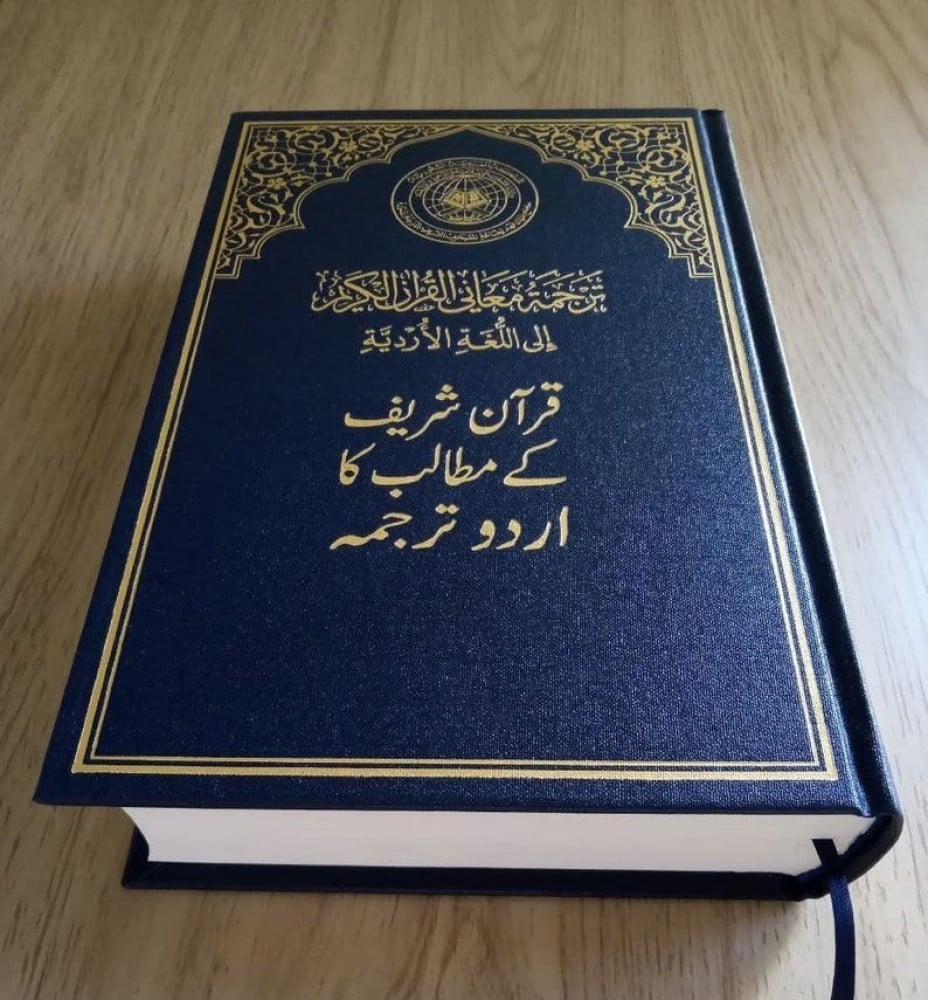 تَرْجَمَةُ مَعَانِي الْقُرْآنِ الْكَرِيمِ
إِلَى اللُّغَةِ الأُرْدِيَّةِ
قرآن شریف
کے مطالب کا
اردو ترجمہ